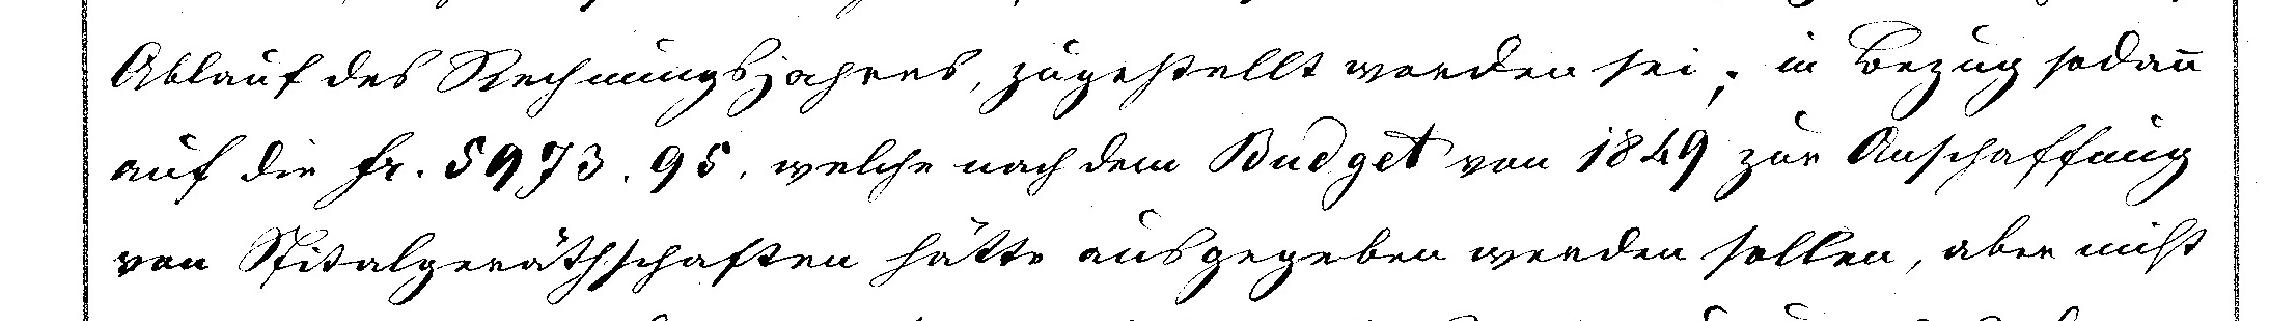 Ablauf des Rechnungsjahres, zugestellt worden sei; in Bezug sodañ
auf die fr. 5973. 95. welche nach dem Budget von 1849 zur Anschaffung
von Spitalgeräthschaften hätte ausgegeben werden sollen, aber nicht